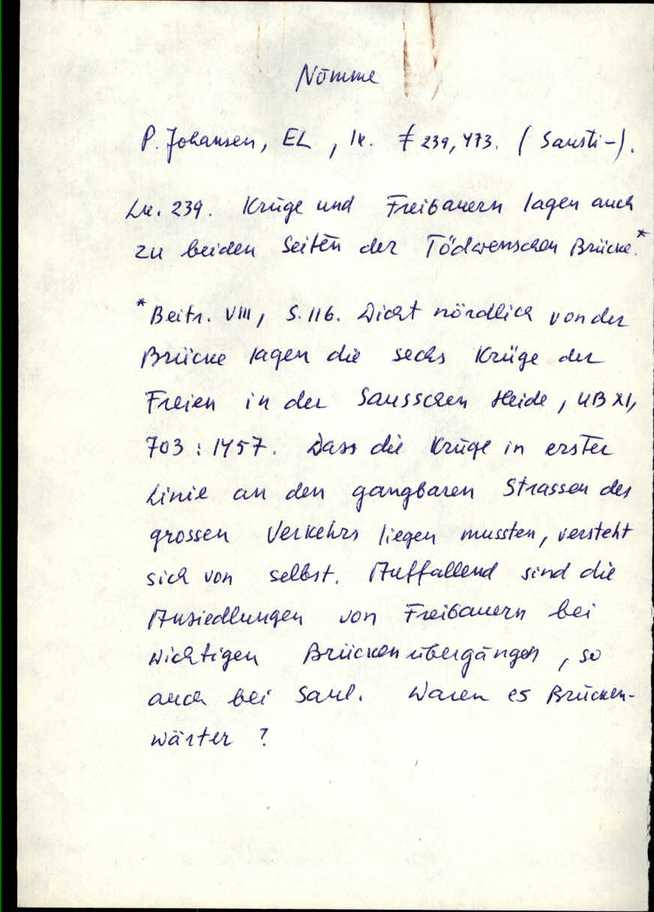 Nõmme
P. Johansen, EL, lk. 239, 473. (Sausti-).
Lk. 239. Krüge und Freibauern lagen auch
zu beiden Seiten der Tödwenschen Brücke.*
*Beitr. VIII, S. 116. Dicht nördlich von der
Brücke lagen die sechs Krüge der
Freien in der Sausschen Heide, UB XI,
703 : 1457. Dass die Krüge in erster
Linie an den gangbaren Strassen des
grossen Verkehrs liegen mussten, versteht
sich von selbst. Auffallend sind die
Ansiedlungen von Freibauern bei
wichtigen Brückenübergängen, so
auch bei Saul. Waren es Brücken-
wärter ?